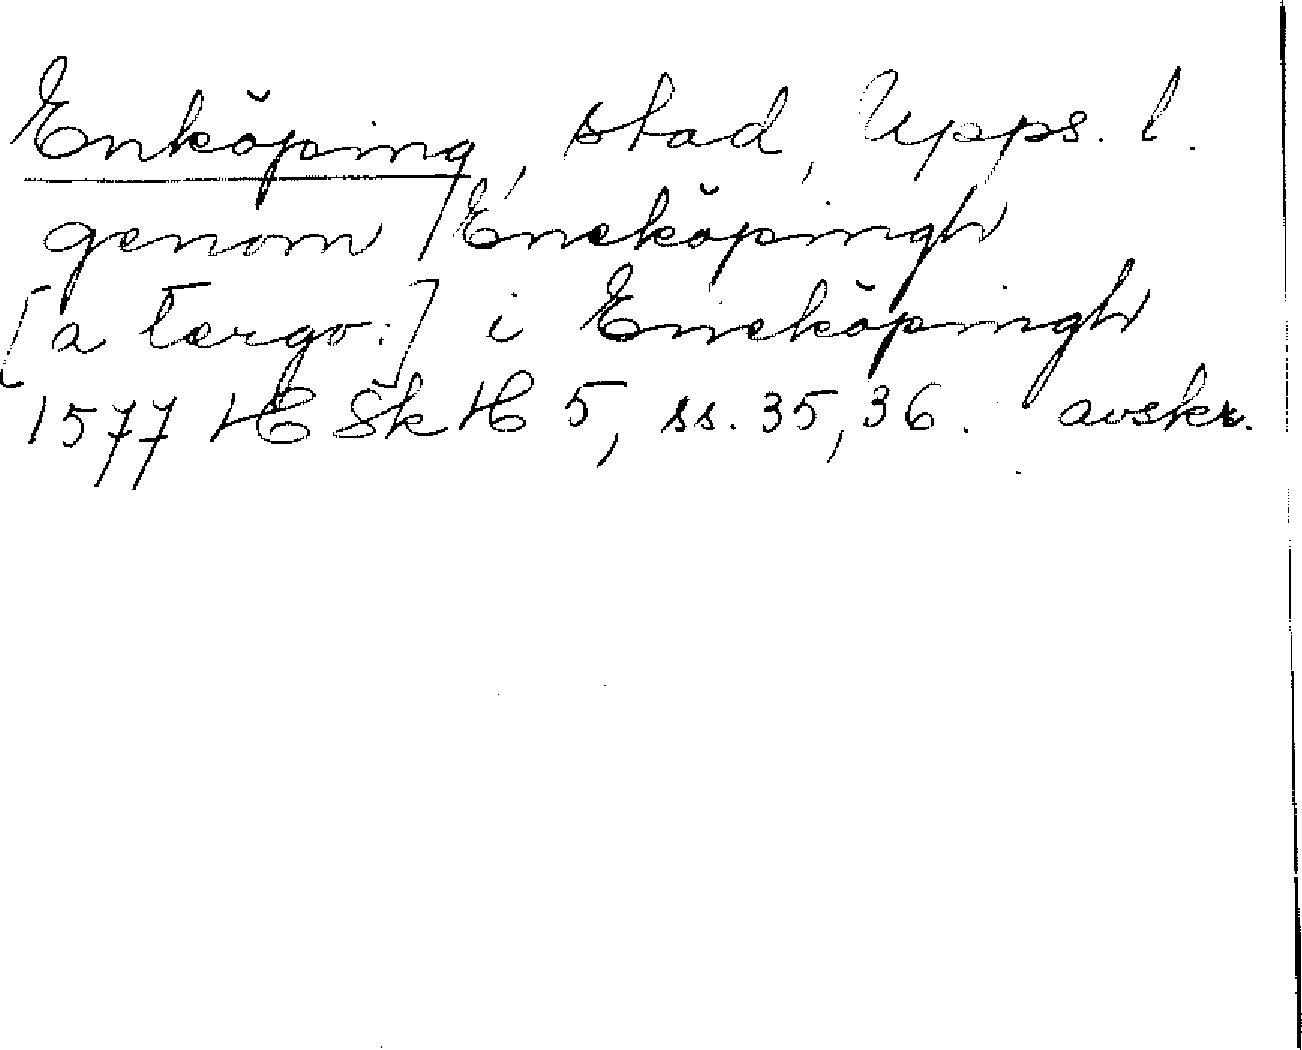 Enköping, stad, Upps. l.
genom Eneköpingh
[a tergo:] i Eneköpingh
1577 HSkH 5, ss. 35, 36. avskr.